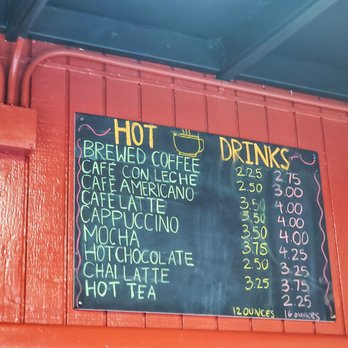 HOT DRINKS
BREWED COFFEE 2.25 2.75
CAFE CON LECHE 2.50 3.00
CAFE AMERICANO 3.50 4.00
CAFE LATTE 3.50 4.00
CAPPUCCINO 3.50 4.00
MOCHA 3.75 4.25
HOT CHOCOLATE 2.50 3.25
CHAI LATTE 3.25 3.75
HOT TEA 2.25
12 OUNCES 16 OUNCES